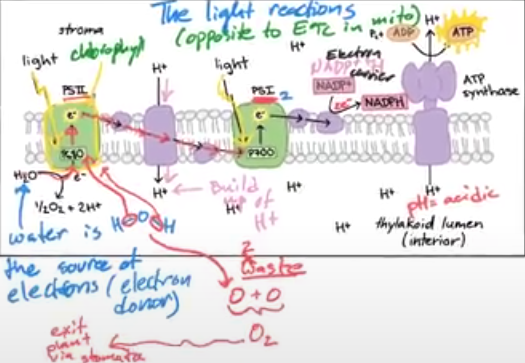 The light reactions
(opposite to ETC in mito)
stroma
chlorophyl
light
PSII
e-
H2O
e-
1/2O2 + 2H+
H+
H+
light
PSI
2
e-
P700
H+
Electron
NADP+ H
carrier
NADP+
2e-
NADPH
H+
Pi
ADP
ATP
ATP
synthase
Build
up of
H+
H+
H+
H+
H+
H+
pH= acidic
thylakoid lumen
(interior)
water is
the source of
electrons (electron
donor)
H O O H
2
Waste
O + O
O2
exit
plant
via stomata